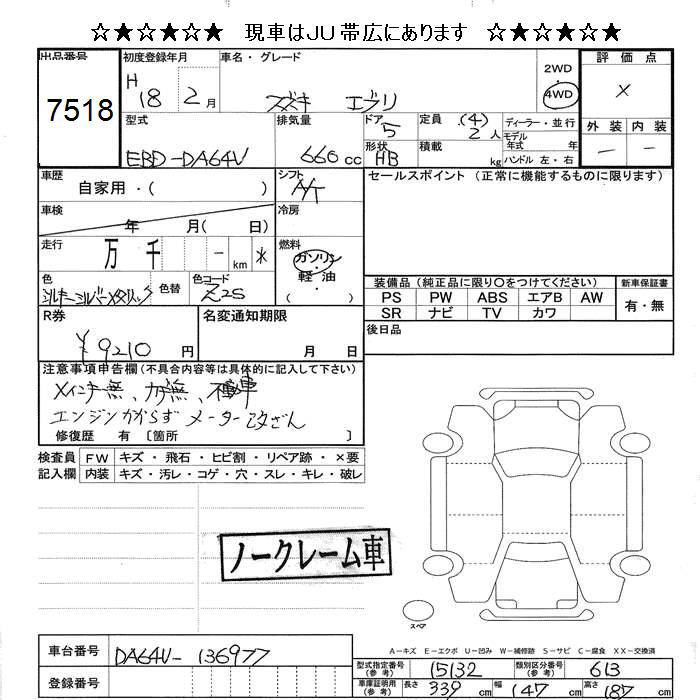 ☆★☆★☆★ 現車はJU帯広にあります ☆★☆★☆★
出品番号 初度登録年月 車名・グレード 2WD 評価点
7518 H 18 2月 スズキ エブリ 4WD ×
型式 排気量 ドア 5 定員 (4) 2人 ディーラー・並行 外装 内装
モデル年式 年 － －
EBD-DA64V 660cc 形状 HB 積載 kg ハンドル 左・右
車歴 自家用・( ) シフト A/T セールスポイント (正常に機能するものに限ります)
車検 年 月( 日) 冷房
走行 万 千 - km * 燃料 ガソリン・軽油 ( )
色 シルキーシルバーメタリック 色替 色コード Z2S 装備品 (純正品に限り○をつけてください) 新車保証書
PS PW ABS エアB AW 有・無
R券 名変通知期限 SR ナビ TV カワ
¥9210円 月 日 後日品
注意事項申告欄(不具合内容等は具体的に記入して下さい)
メインキー無、カギ無、不動車
エンジンかからず メーター改ざん
修復歴 有 〔箇所 〕
検査員 FW キズ・飛石・ヒビ割・リペア跡・×要
記入欄 内装 キズ・汚レ・コゲ・穴・スレ・キレ・破レ
ノークレーム車
スペア
A－キズ E－エクボ U－凹み W－補修跡 S－サビ C－腐食 XX－交換済
車台番号 DA64V-136977 型式指定番号(参考) 15132 類別区分番号(参考) 613
登録番号 車庫証明用(参考) 長さ 339cm 幅 147cm 高さ 187cm